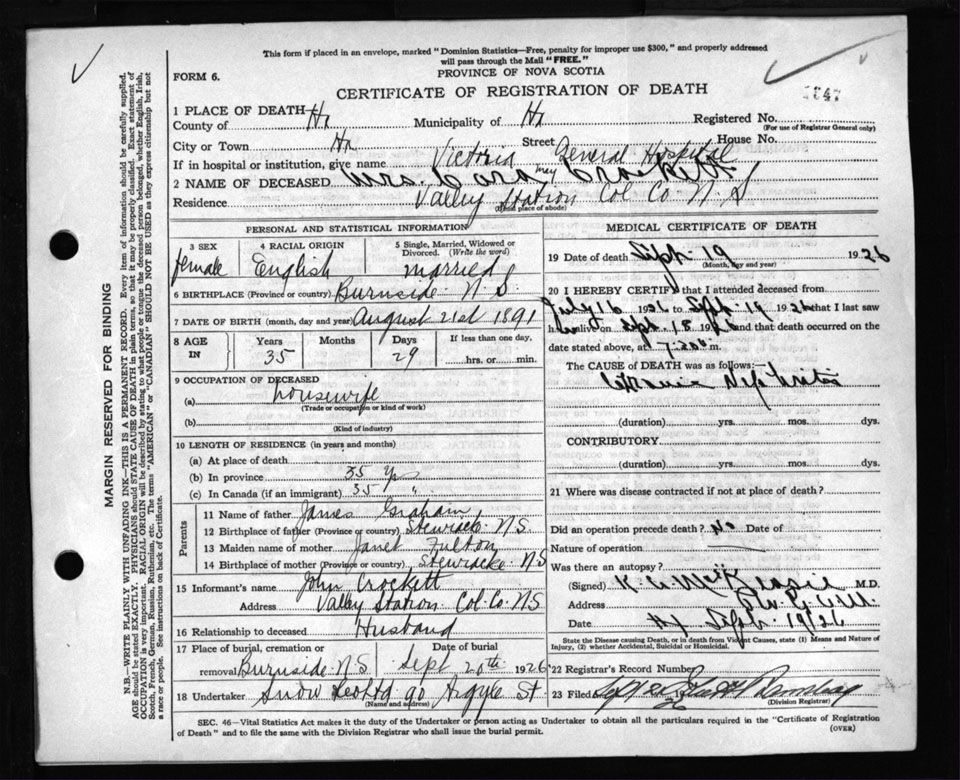 This form if placed in an envelope, marked "Dominion Statistics—Free, penalty for improper use $300," and properly addressed
will pass through the Mail "FREE."
FORM 6.
PROVINCE OF NOVA SCOTIA
CERTIFICATE OF REGISTRATION OF DEATH
1 PLACE OF DEATH
County of Hx Municipality of Hx Registered No.
(For use of Registrar General only)
City or Town Hx Street House No.
If in hospital or institution, give name Victoria General Hospital
2 NAME OF DECEASED Mrs. Cora May Crockett
Residence Valley Station Col Co N.S
(Usual place of abode)
PERSONAL AND STATISTICAL INFORMATION
3 SEX female
4 RACIAL ORIGIN English
5 Single, Married, Widowed or Divorced. (Write the word) married
6 BIRTHPLACE (Province or country) Burnside N.S.
7 DATE OF BIRTH (month, day and year) August 21st 1891
8 AGE IN Years 35 Months Days 29 If less than one day, hrs. or min.
9 OCCUPATION OF DECEASED
(a) housewife
(Trade or occupation or kind of work)
(b)
(Kind of industry)
10 LENGTH OF RESIDENCE (in years and months)
(a) At place of death
(b) In province 35 Y
(c) In Canada (if an immigrant) 35 "
Parents
11 Name of father James Graham
12 Birthplace of father (Province or Country) Stewiacke N.S.
13 Maiden name of mother Janet Fulton
14 Birthplace of mother (Province or Country) Stewiacke N.S
15 Informant's name John Crockett
Address Valley Station Col. Co. N.S
16 Relationship to deceased Husband
17 Place of burial, cremation or removal Burnside N.S. Date of burial Sept 20th 1926
18 Undertaker Snow & Co Ltd 90 Argyle St
(Name and address)
MEDICAL CERTIFICATE OF DEATH
19 Date of death Sept. 19 1926
(Month, day and year)
20 I HEREBY CERTIFY that I attended deceased from
July 16 1926 to Sept. 19 1926 that I last saw
h alive on Sept. 18 1926 and that death occurred on
date stated above, at 7.20 m.
The CAUSE OF DEATH was as follows:—
Chronic Nephritis
(duration) yrs. mos. dys.
CONTRIBUTORY
(duration) yrs. mos. dys.
21 Where was disease contracted if not at place of death?
Did an operation precede death? No Date of
Nature of operation
Was there an autopsy?
(Signed) M.D.
Address
Date Hx Sept. 19/26
State the Disease causing Death, or in death from Violent Causes, state (1) Means and Nature of Injury, (2) whether Accidental, Suicidal or Homicidal.
22 Registrar's Record Number
23 Filed 19
(Division Registrar)
SEC. 46—Vital Statistics Act makes it the duty of the Undertaker or person acting as Undertaker to obtain all the particulars required in the "Certificate of Registration
of Death" and to file the same with the Division Registrar who shall issue the burial permit.
(OVER)
MARGIN RESERVED FOR BINDING
N.B.—WRITE PLAINLY WITH UNFADING INK—THIS IS A PERMANENT RECORD. Every item of information should be carefully supplied.
AGE should be stated EXACTLY. PHYSICIANS should STATE CAUSE OF DEATH in plain terms, so that it may be properly classified. Exact statement of
OCCUPATION is very important. RACIAL ORIGIN will be described by stating to what people or tongue the deceased person belonged, whether English, Irish,
Scotch, French, German, Russian, Ruthenian, etc. The terms "AMERICAN" or "CANADIAN" SHOULD NOT BE USED as they express citizenship but not
a race or people. See instructions on back of Certificate.